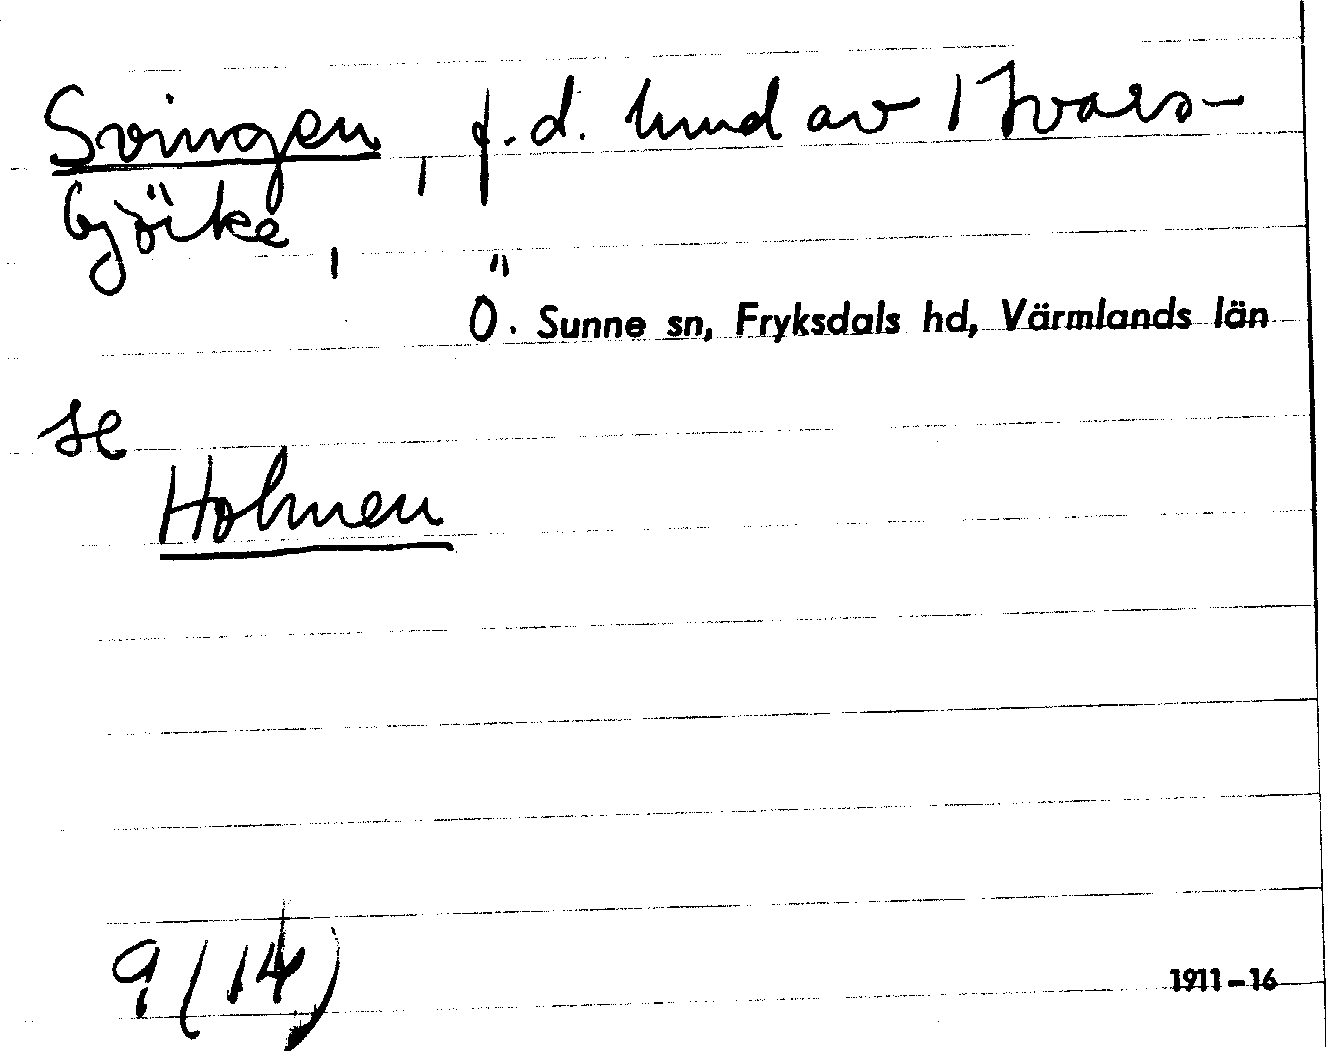 Svingen, f.d. lund av 1 Ivars-
björke,
Ö. Sunne sn, Fryksdals hd, Värmlands län
se
Holmen
9 (14)
1911-16